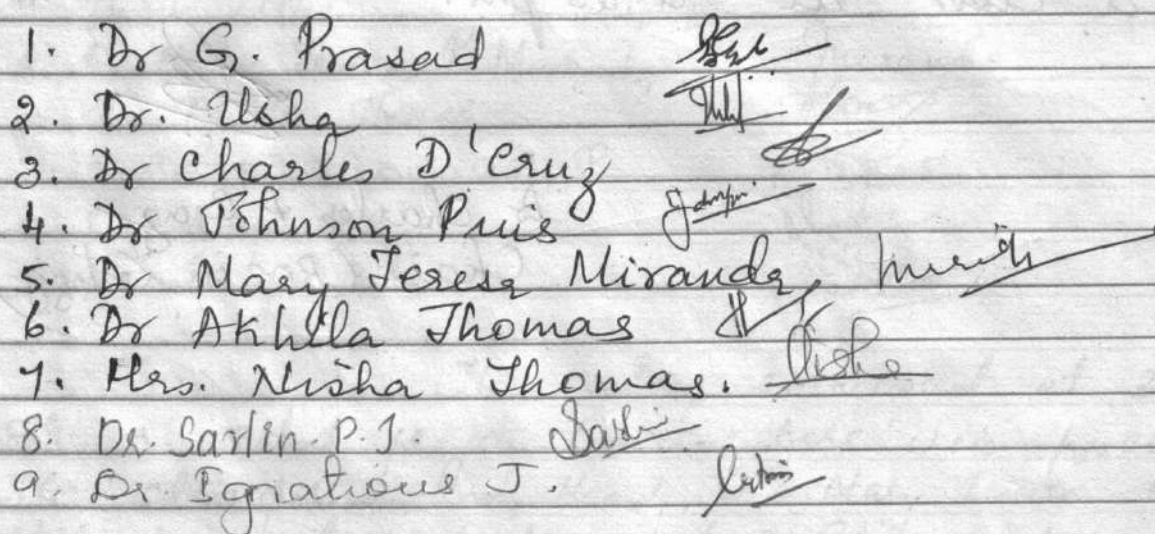 1. Dr G. Prasad
2. Dr. Usha
3. Dr Charles D'Cruz
4. Dr Johnson Pius
5. Dr Mary Teresa Miranda
6. Dr Akhila Thomas
7. Mrs. Nisha Thomas. Nisha
8. Dr. Sarlin. P. J. Sarlin
9. Dr. Ignatious J.